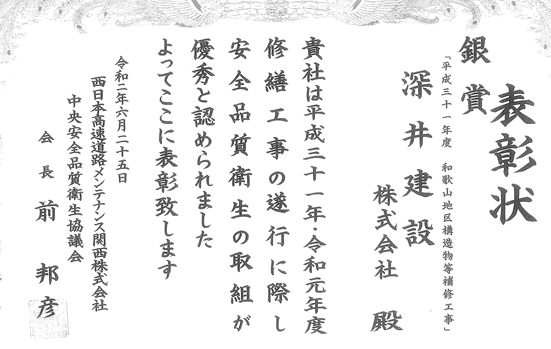 表彰状
銀賞
「平成三十一年度　和歌山地区構造物等補修工事」
深井建設
株式会社　殿
貴社は平成三十一年・令和元年度
修繕工事の遂行に際し
安全品質衛生の取組が
優秀と認められました
よってここに表彰致します
令和二年六月二十五日
西日本高速道路メンテナンス関西株式会社
中央安全品質衛生協議会
会長　前　邦彦